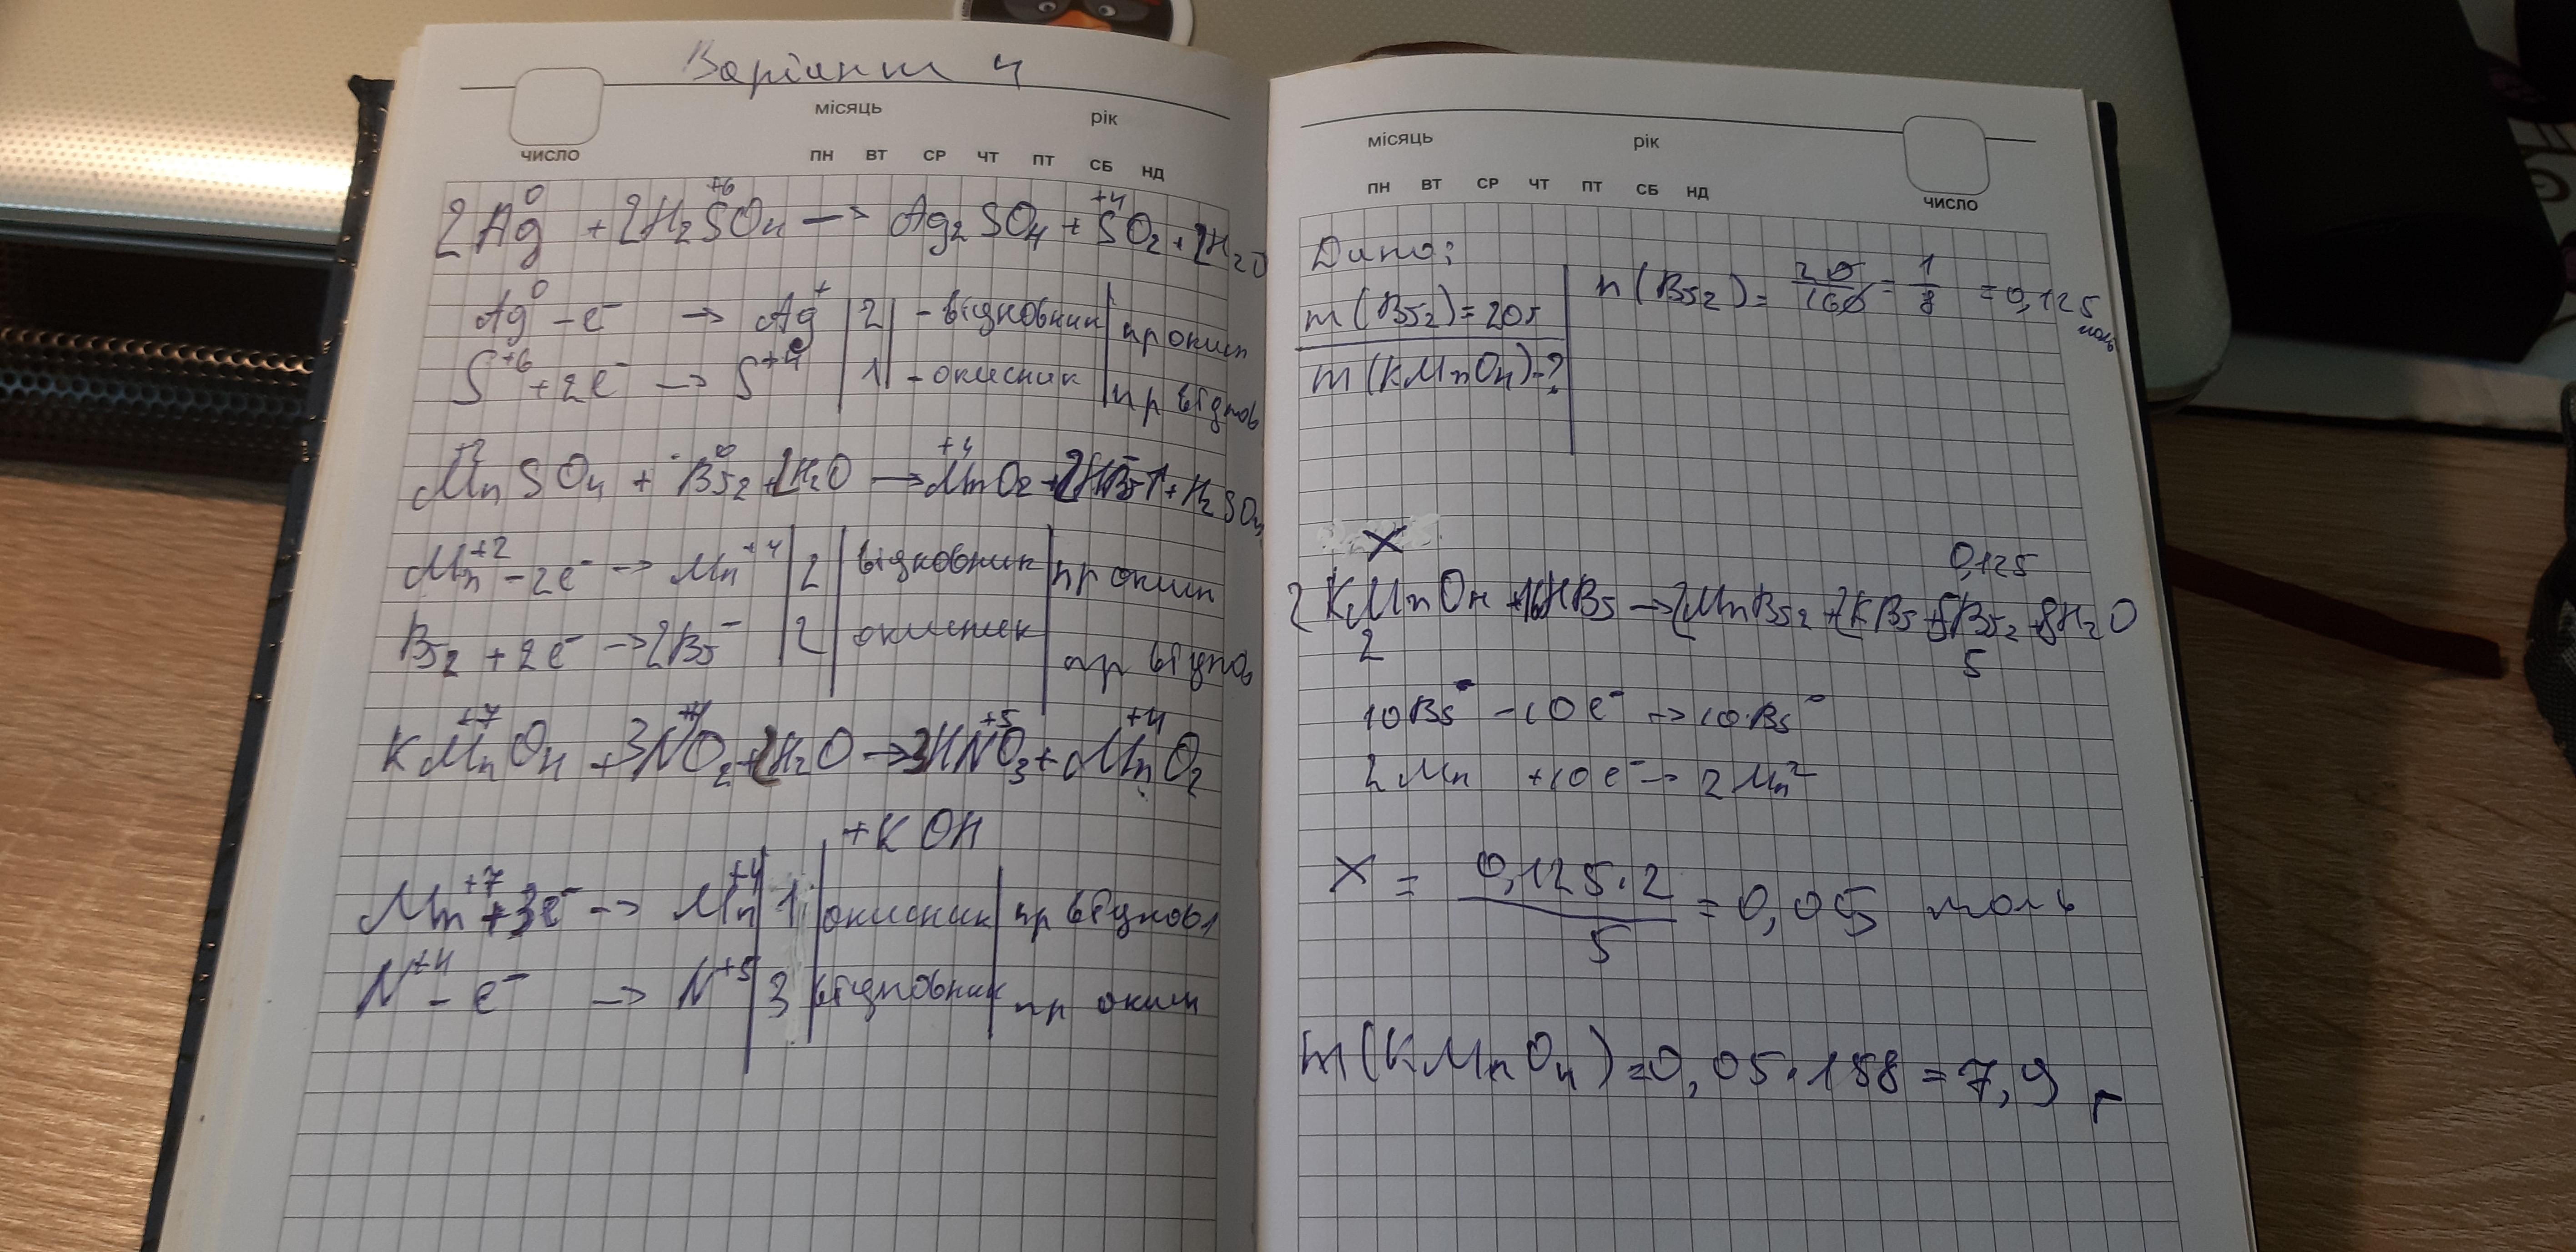 Варіант 4
місяць рік
число
пн вт ср чт пт сб нд
2Ag⁰ + 2H₂S⁺⁶O₄ → Ag₂SO₄ + S⁺⁴O₂ + 2H₂O
Ag⁰ - e⁻ → Ag⁺ | 2 | - відновник | пр окисн
S⁺⁶ + 2e⁻ → S⁺⁴ | 1 | - окисник | пр віднов
Mn⁺²SO₄ + Br₂⁰ + 2H₂O → Mn⁺⁴O₂ + 2HBr⁻ + H₂SO₄
Mn⁺² - 2e⁻ → Mn⁺⁴ | 2 | відновник | пр окисн
Br₂ + 2e⁻ → 2Br⁻ | 2 | окисник | пр віднов
KMn⁺⁷O₄ + 3N⁺⁴O₂ + 2H₂O → 3HN⁺⁵O₃ + Mn⁺⁴O₂
+ KOH
Mn⁺⁷ + 3e⁻ → Mn⁺⁴ | 1 | окисник | пр віднов
N⁺⁴ - e⁻ → N⁺⁵ | 3 | відновник | пр окисн
місяць рік
пн вт ср чт пт сб нд
число
Дано:
m(Br₂) = 20г
m(KMnO₄) - ?
n(Br₂) = 20/160 = 1/8 = 0,125 моль
x 0,125
2KMnO₄ + 16HBr → 2MnBr₂ + 2KBr + 5Br₂ + 8H₂O
2 5
10Br⁻ - 10e⁻ → 10Br⁻
2Mn + 10e⁻ → 2Mn²
x = 0,125·2/5 = 0,05 моль
m(KMnO₄) = 0,05·158 = 7,9 г